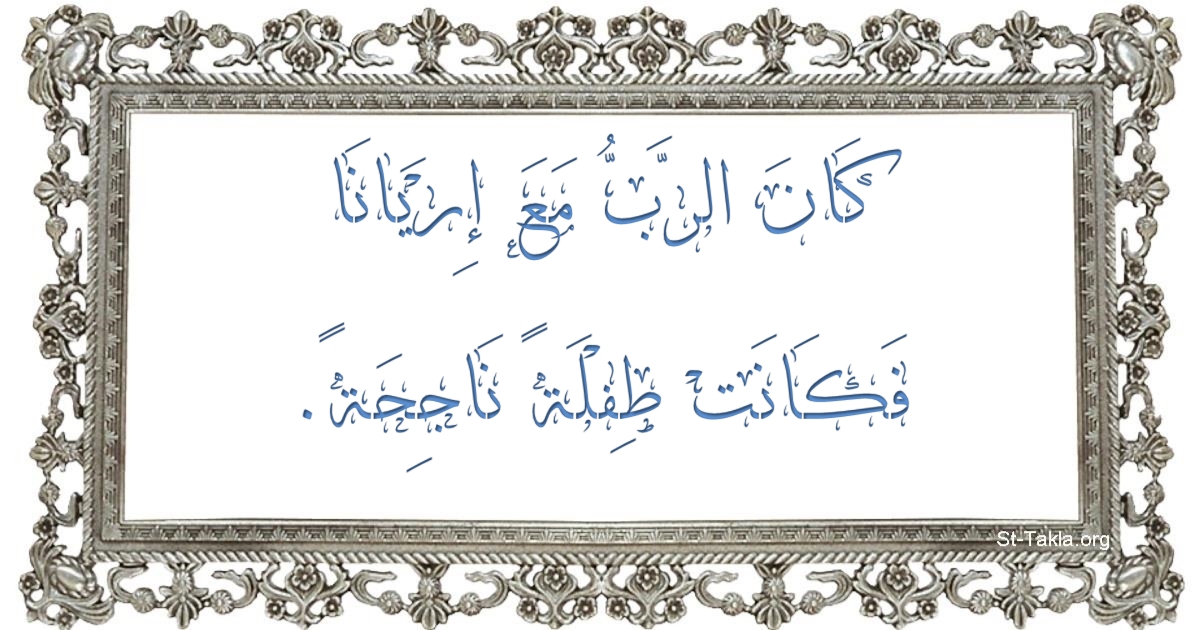 كَانَ الرَّبُّ مَعَ إِريَانَا
فَكَانَت طِفلَةً نَاجِحَةً.
St-Takla.org